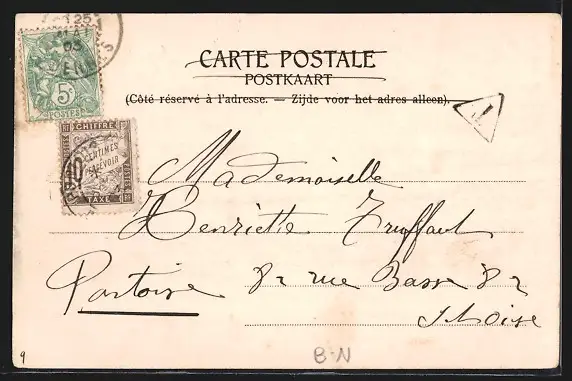 25
MAI
03
5c
POSTES
CHIFFRE
10
CENTIMES
À PERCEVOIR
TAXE
CARTE POSTALE
POSTKAART
(Côté réservé à l'adresse. — Zijde voor het adres alleen).
T
Mademoiselle
Henriette Truffaut
82 rue Basse 82
Pontoise
S & Oise
9
B-N